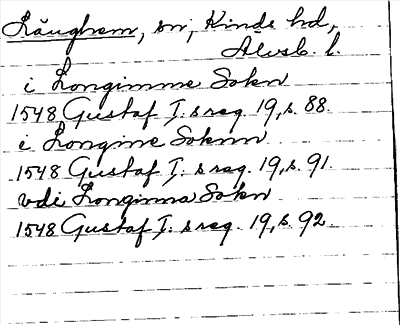 Länghem, sn, Kinds hd,
Älvsb. l.
i Longimme Sokn
1548 Gustaf I:s reg. 19, s. 88.
i Longine Soknn
1548 Gustaf I:s reg. 19, s. 91.
vdi Longinna Sokn
1548 Gustaf I:s reg. 19, s. 92.